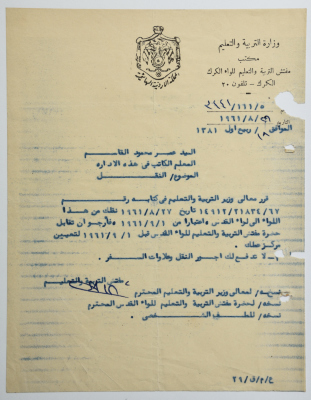 وزارة التربية والتعليم
مكتب
مفتش التربية والتعليم للواء الكرك
الكرك – تلفون ٢٠
المملكة الاردنية الهاشمية
١١١/٥/
التاريخ /١٩٦١/٨
الموافق ١٨/ ربيع اول ١٣٨١
السيد عمر محمود القاسم
المعلم الكاتب في هذه الادارة
الموضوع/ النقل
قرر معالي وزير التربية والتعليم في كتابه رقم
١٤١١٢/٢١٨٣٤/٦٧ تاريخ ١٩٦١/٨/٢٧ نقلك من هذا
اللواء الى لواء القدس واعتبارا من ١٩٦١/٩/١ فأرجو أن تقابل
حضرة مفتش التربية والتعليم للواء القدس قبل ١٩٦١/٩/١ لتعيين
مركز عملك
لا تدفع لك اجور النقل وعلاوات السفر.
مفتش التربية والتعليم
نسخة/ لمعالي وزير التربية والتعليم المحترم
نسخة/ لحضرة مفتش التربية والتعليم للواء القدس المحترم
نسخة/ للملف الشخصي